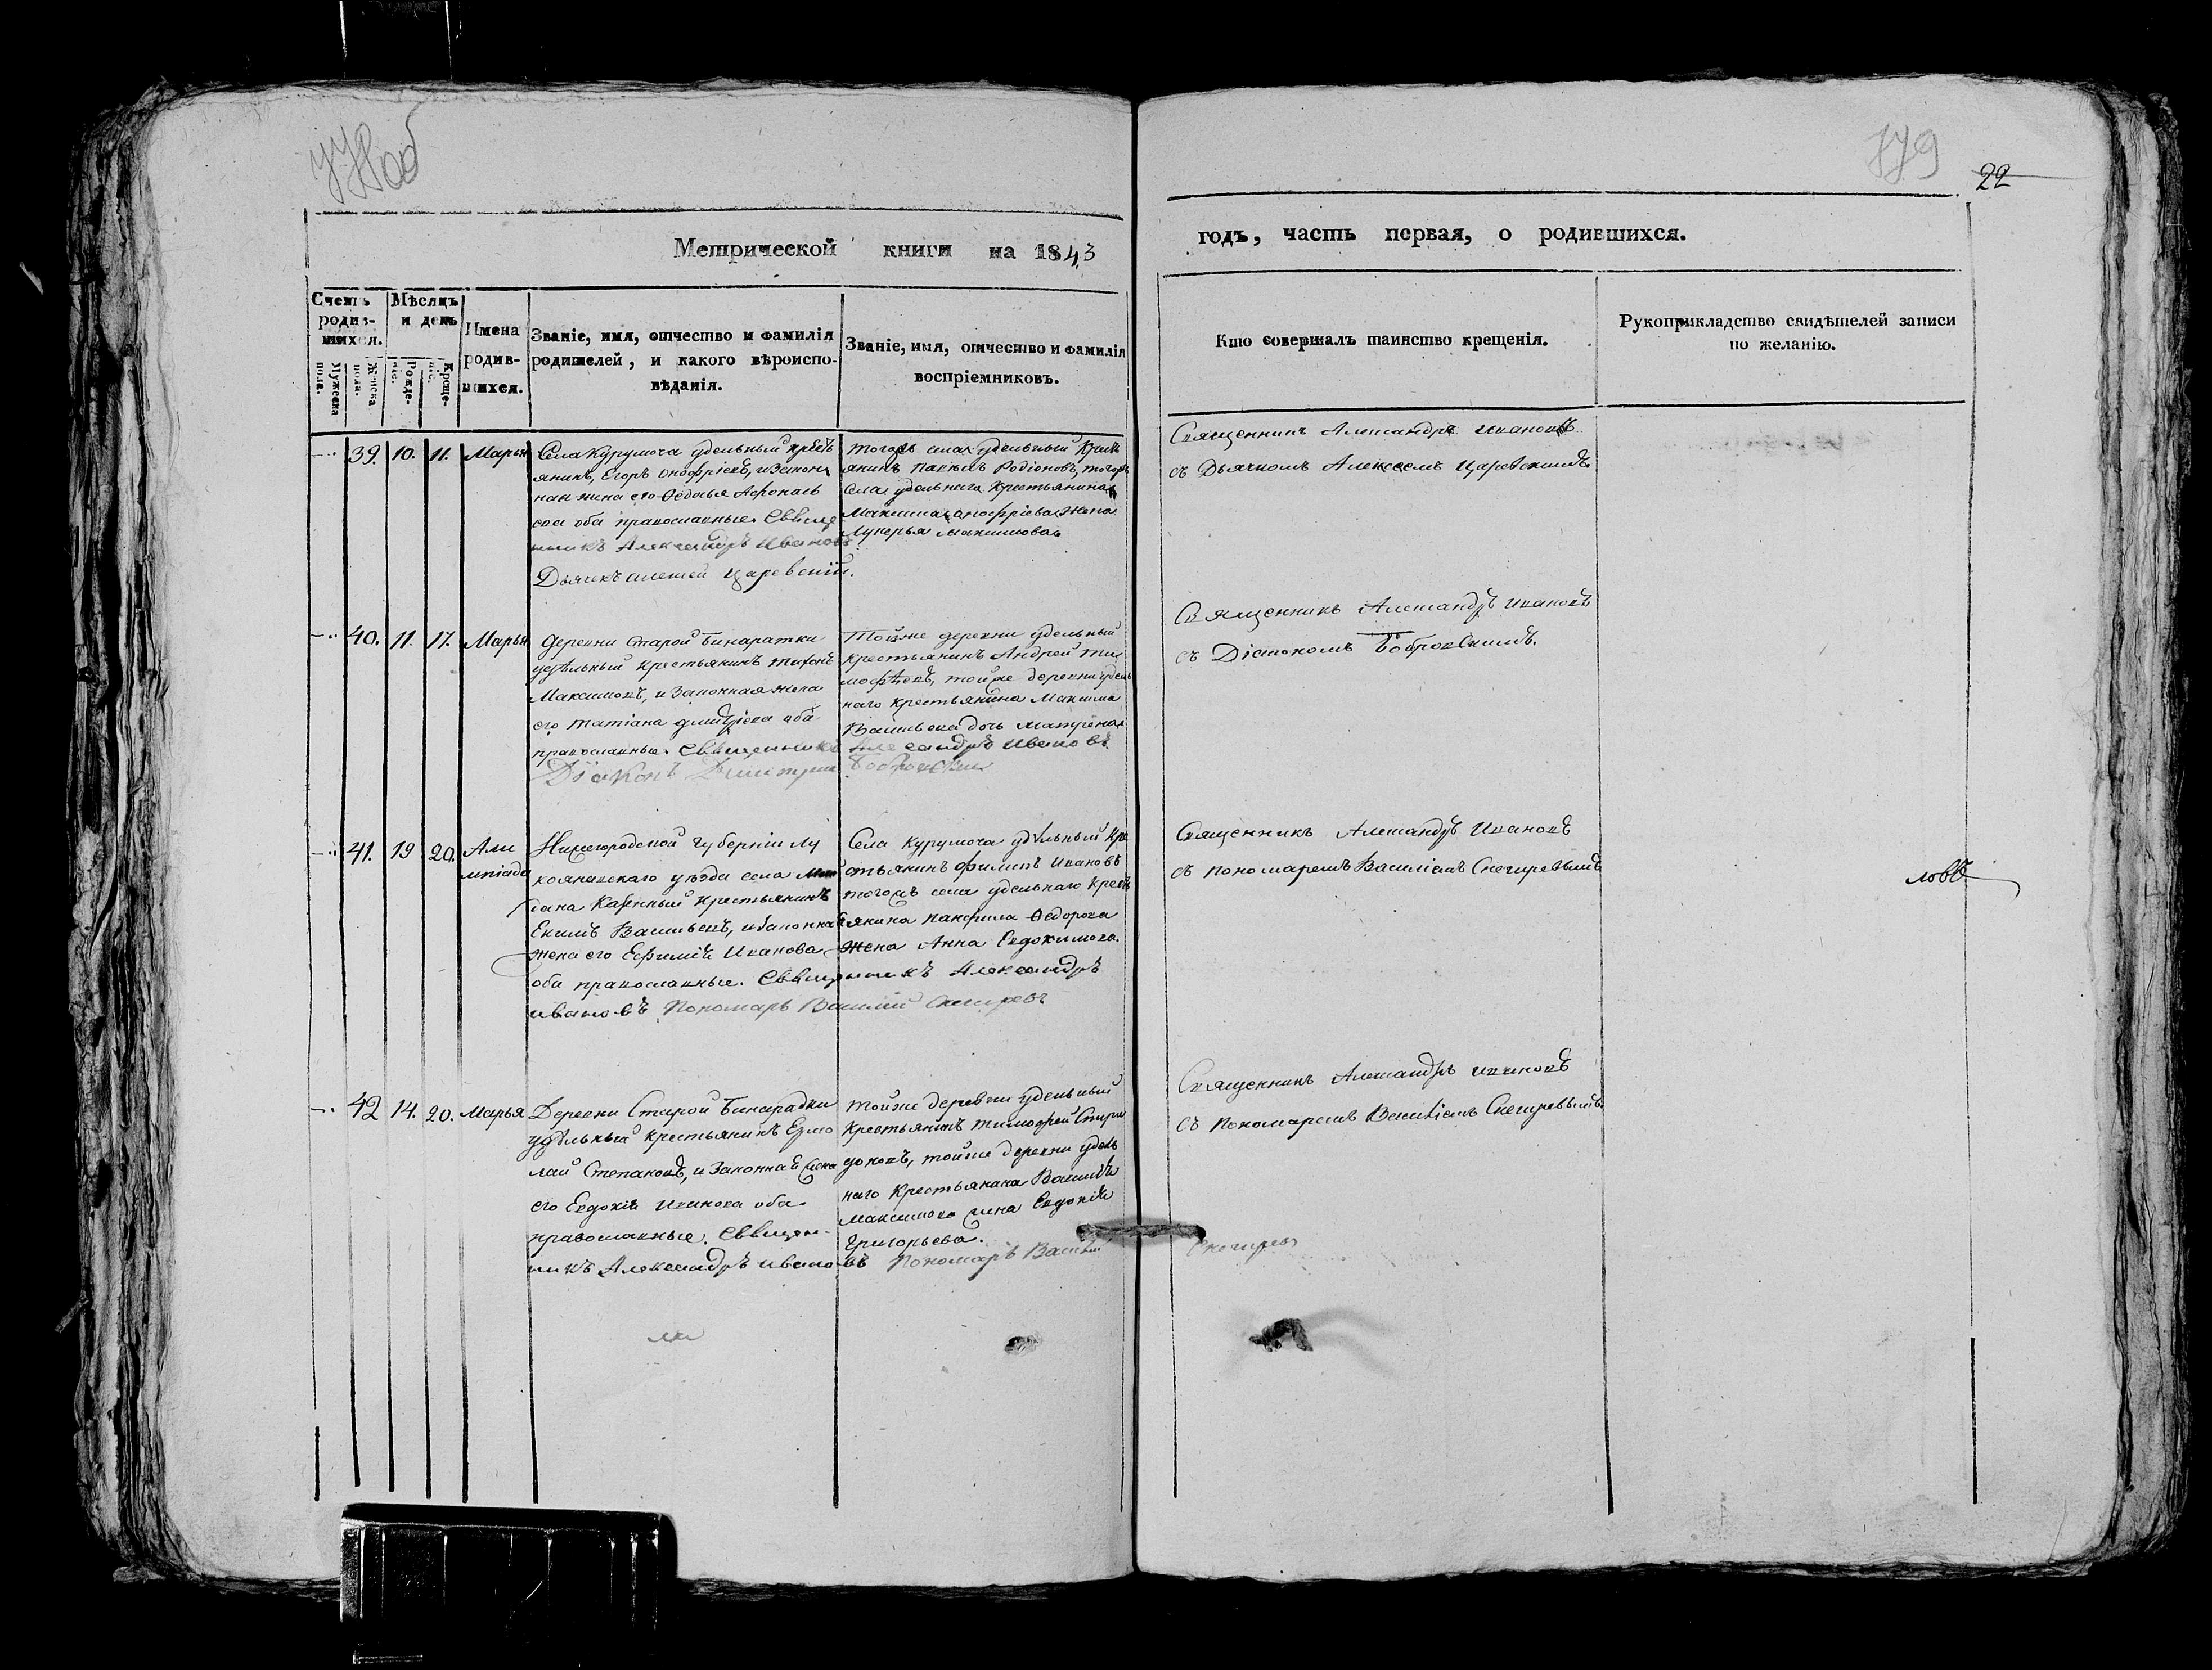 778об
779
22
Метрической книги на 1843
годъ, часть первая, о родившихся.
Счетъ родив-шихся.
Мужеска пола.
Женска пола.
Мѣсяцъ и день
Рожде-нiе.
Креще-нiе.
Имена родив-шихся.
Званіе, имя, отчество и фамилія
родителей, и какого вѣроиспо-
вѣданія.
Званіе, имя, отчество и фамилія
воспріемниковъ.
Кто совершалъ таинство крещенія.
Рукоприкладство свидѣтелей записи
по желанію.
39. 10. 11. Марья
Села Курумоча удельный кресть
янинъ, Егоръ Онофріевъ, и закон
ная жена его Федосья Афонась
ева оба православные. Священ
никъ Александръ Ивановъ
Дьячекъ Алексей Царевскій.
тогожъ села удельный Крест
янинъ Родіоновъ, тогожъ
села удельнаго Крестьянина
Максима Онофріева Жена
Лукерья Максимова
Священникъ Александръ Ивановъ
съ Дьячкомъ Алексеемъ Царевскимъ
40. 11. 17. Марья
Деревни Старой Бинаратки
удѣльный крестьянинъ Тихонъ
Максимовъ, и Законная жена
его Татіана Дмитріева оба
православные. Священникъ Александръ Ивановъ
Діаконъ Димитрій Бобровскій
Тойже деревни удельный
крестьянинъ Андрей Ти
мофѣевъ, тойже деревни удель
наго крестьянина Максима
Васильева дочь Матрена
Священникъ Александръ Ивановъ
съ Діакономъ Бобровскимъ.
41. 19 20. Али
мпіада
Нижегородской Губерніи Лу
кояновскаго уѣзда села
дана Казенный Крестьянинъ
Екимъ Васильевъ, и законная
жена его Ефимія Иванова
оба православные. Священникъ Александръ
Ивановъ Пономарь Василій Снегиревъ
Села Курумоча удѣльный Кре
стьянинъ Филипъ Ивановъ
тогожъ села удельнаго Крест
янина Панфила Федорова
жена Анна Евдокимова.
Священникъ Александръ Ивановъ
съ пономаремъ Василіемъ Снегиревымъ
42 14. 20. Марья
Деревни Старой Бинарадки
удѣльный крестьянинъ Ермо
лай Степановъ, и Законная жена
его Евдокія Иванова оба
православные. Священ-
никъ Александръ Ивановъ Пономарь Василій Снегиревъ
тойже деревни удельный
Крестьянинъ Тимофей Спири
доновъ, тойже деревни удель
наго Крестьянина Василья
Максимова жена Евдокія
Григорьева.
Священникъ Александръ Ивановъ
съ Пономаремъ Василіемъ Снегиревымъ